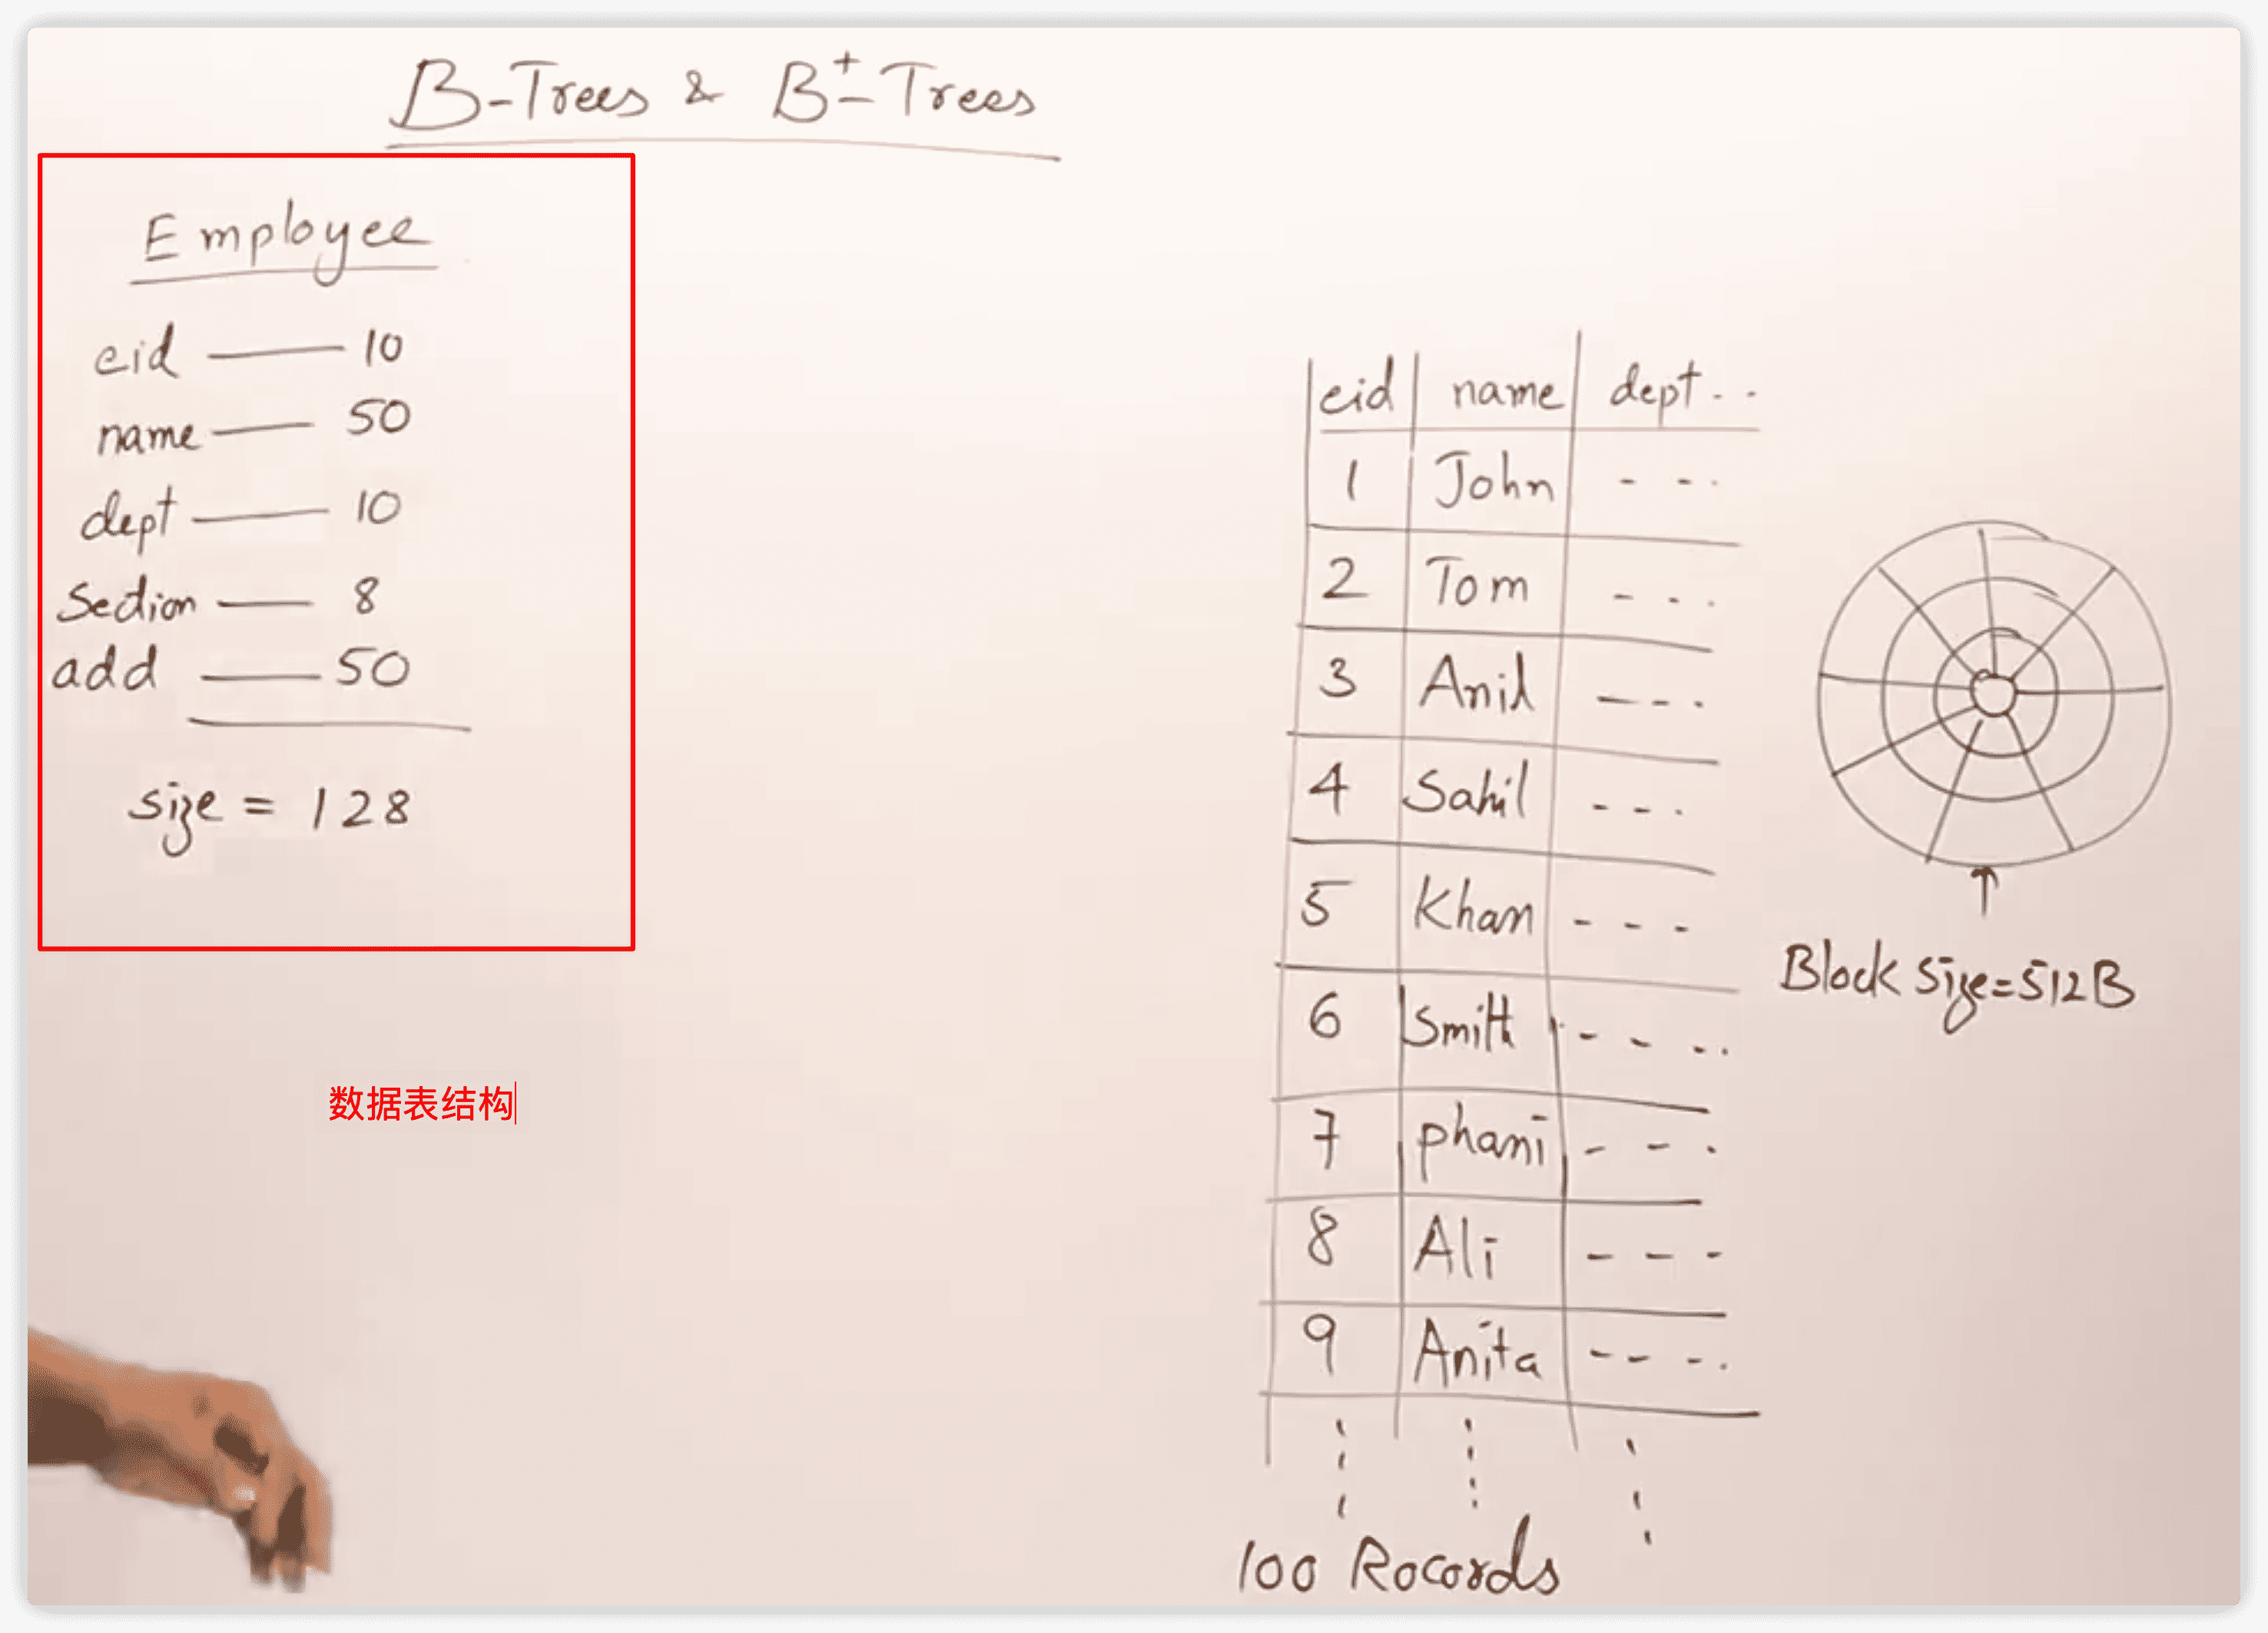 B-Trees & B+-Trees
Employee
eid —— 10
name —— 50
dept —— 10
Section —— 8
add —— 50
size = 128
数据表结构
eid name dept . .
1 John - - -
2 Tom - - -
3 Anil - - -
4 Sahil - - -
5 Khan - - -
6 Smith - - - .
7 phani - - -
8 Ali - - -
9 Anita - - - .
100 Rocords
Block Size=512B